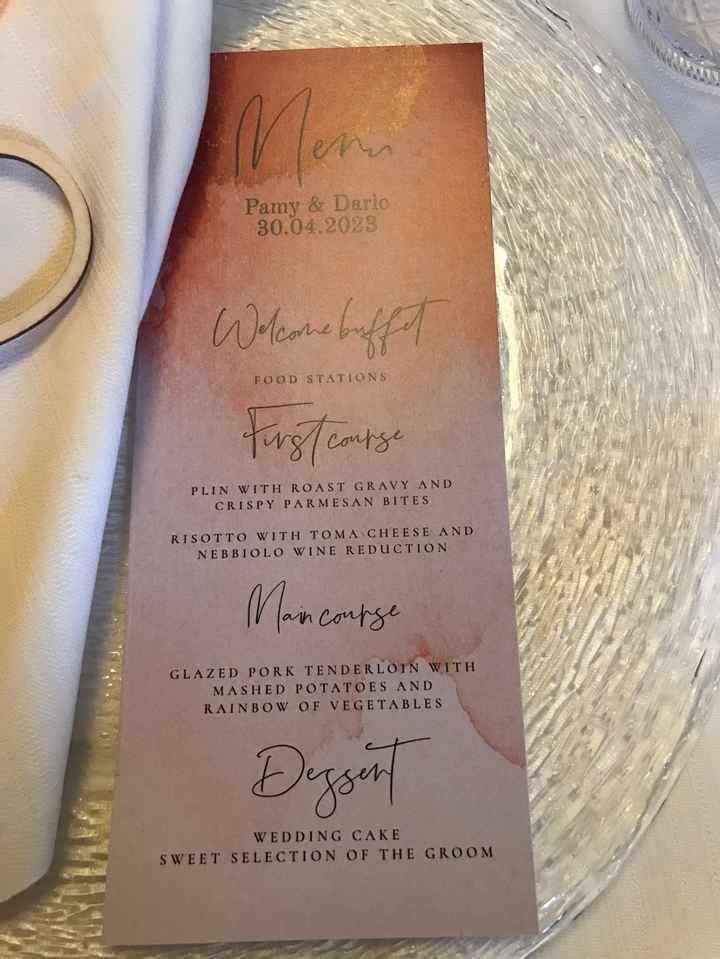 Menu
Pamy & Dario
30.04.2023
Welcome buffet
FOOD STATIONS
First course
PLIN WITH ROAST GRAVY AND
CRISPY PARMESAN BITES
RISOTTO WITH TOMA CHEESE AND
NEBBIOLO WINE REDUCTION
Main course
GLAZED PORK TENDERLOIN WITH
MASHED POTATOES AND
RAINBOW OF VEGETABLES
Dessert
WEDDING CAKE
SWEET SELECTION OF THE GROOM